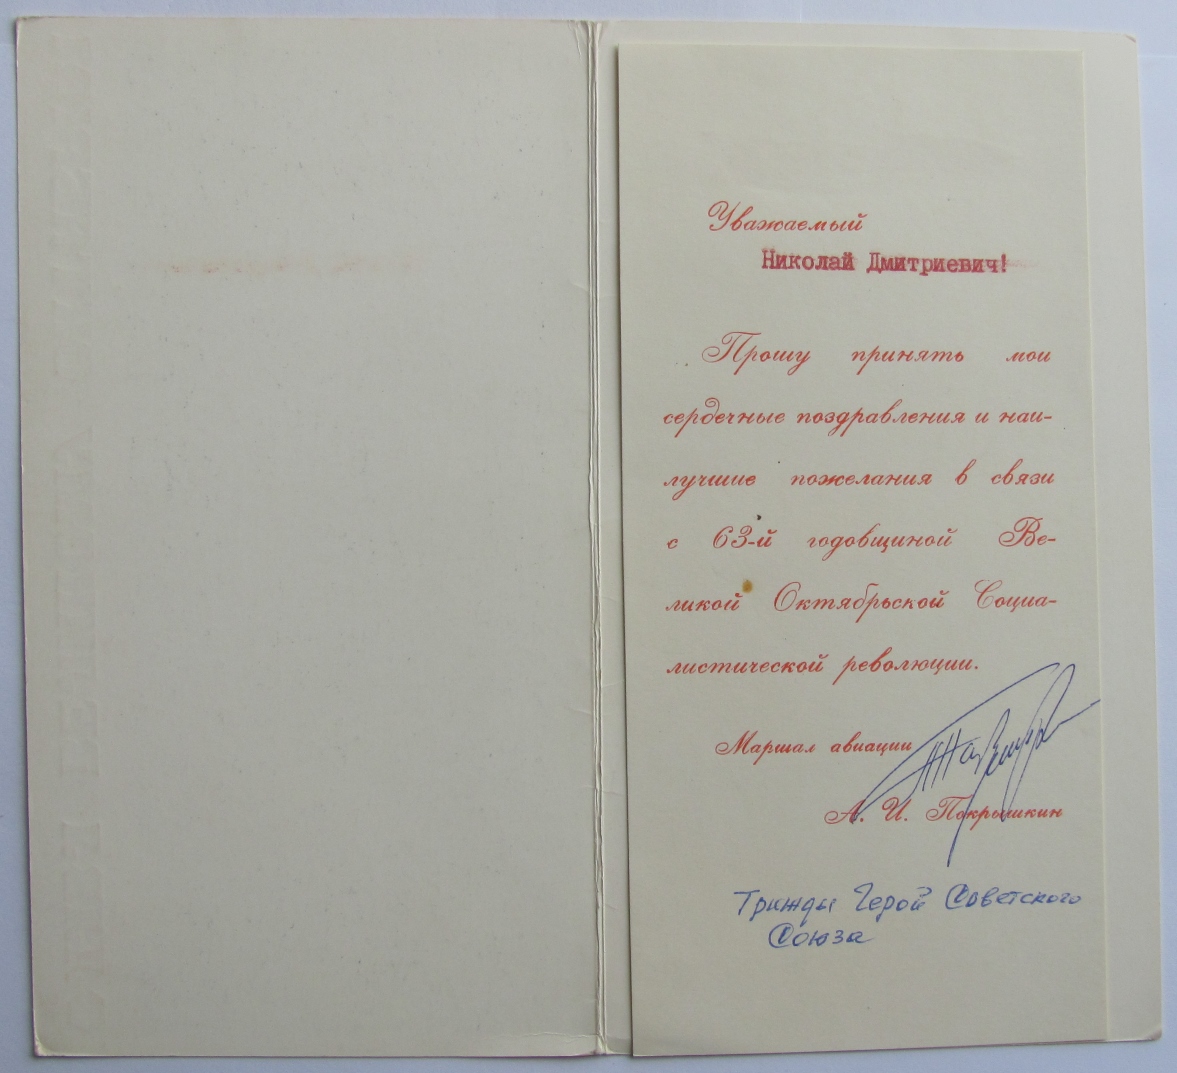 Уважаемый
Николай Дмитриевич!
Прошу принять мои
сердечные поздравления и наи-
лучшие пожелания в связи
с 63-й годовщиной Ве-
ликой Октябрьской Социа-
листической революции.
Маршал авиации
А. И. Покрышкин
Трижды Герой Советского
Союза